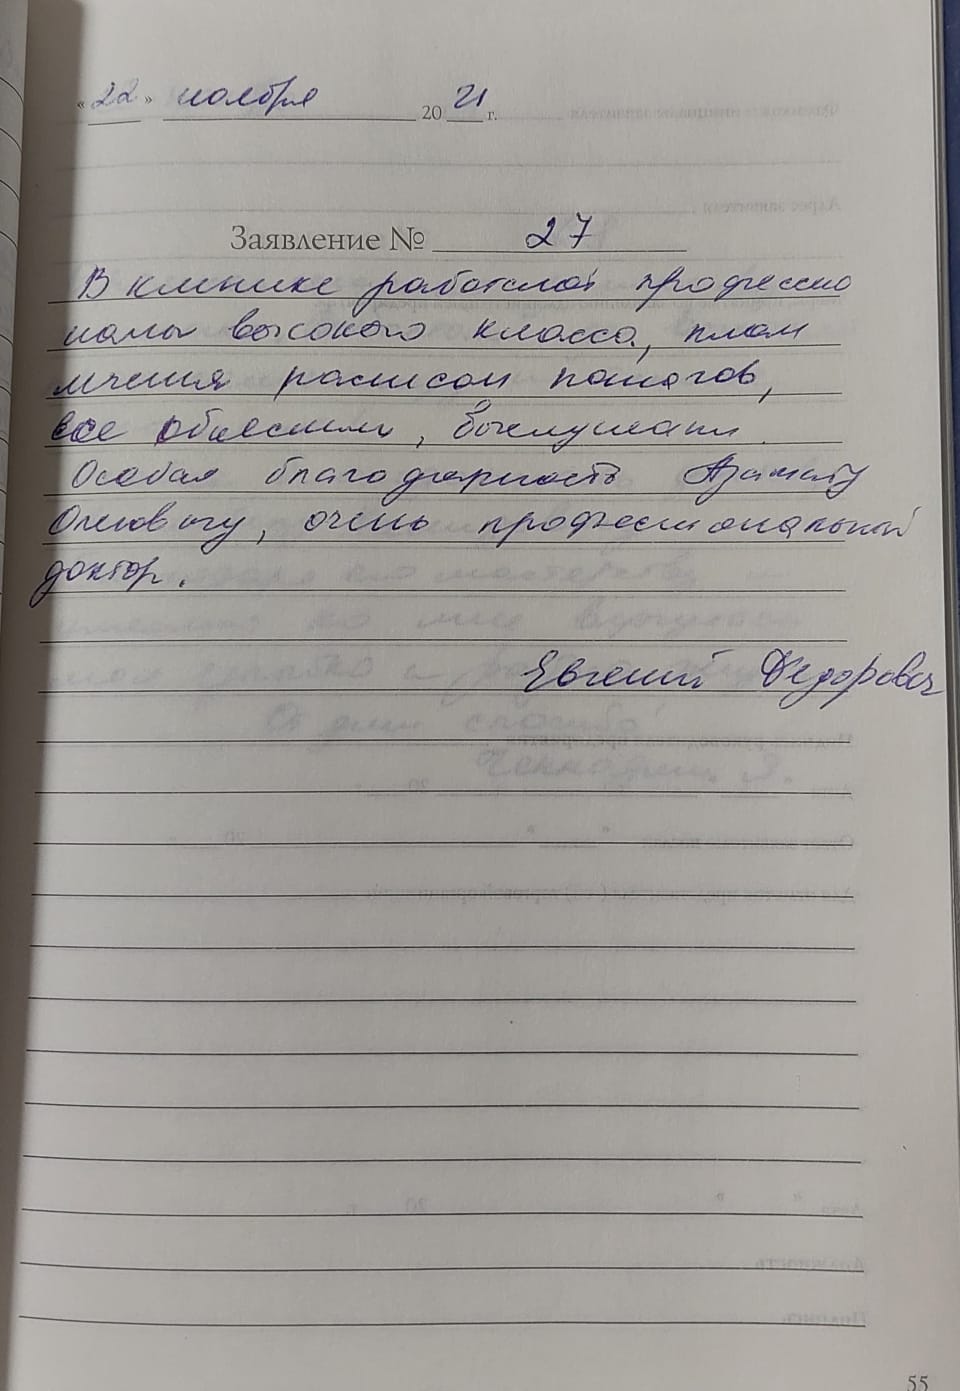 « 22 » ноября 20 21 г.
Заявление № 27
В клинике работают професcио
налы высокого класса, план
лечения расписали пошагово,
все объяснили, выслушали.
Особая благодарность Азамату
Олеговичу, очень профессиональный
доктор.
Евгений Федорович
55